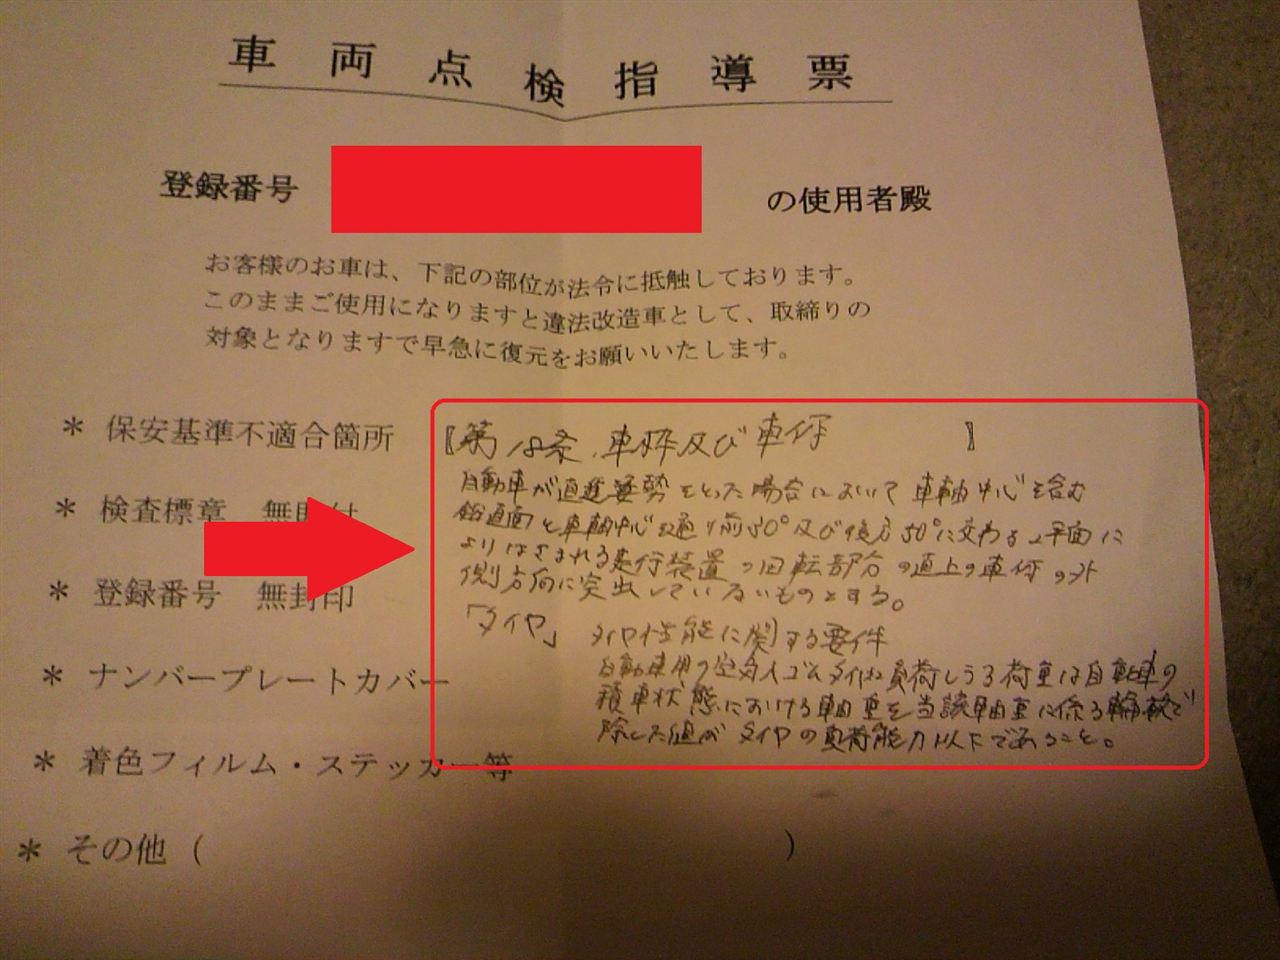 車両点検指導票
登録番号
の使用者殿
お客様のお車は、下記の部位が法令に抵触しております。
このままご使用になりますと違法改造車として、取締りの
対象となりますで早急に復元をお願いいたします。
＊ 保安基準不適合箇所 〖第18条、車枠及び車体 〗
自動車が直進姿勢をとった場合において車軸中心を含む
鉛直面と車軸中心を通り前30°及び後方50°に交わる2平面に
よりはさまれる走行装置の回転部分の直上の車体の外
側方向に突出していないものとする。
「タイヤ」 タイヤ性能に関する要件
自動車用の空気入ゴムタイヤに負荷しうる荷重は自動車の
積車状態における軸重を当該軸重に係る輪数で
除した値がタイヤの負荷能力以下であること。
＊ 検査標章 無
＊ 登録番号 無封印
＊ ナンバープレートカバー
＊ 着色フィルム・ステッカー等
＊ その他（ ）